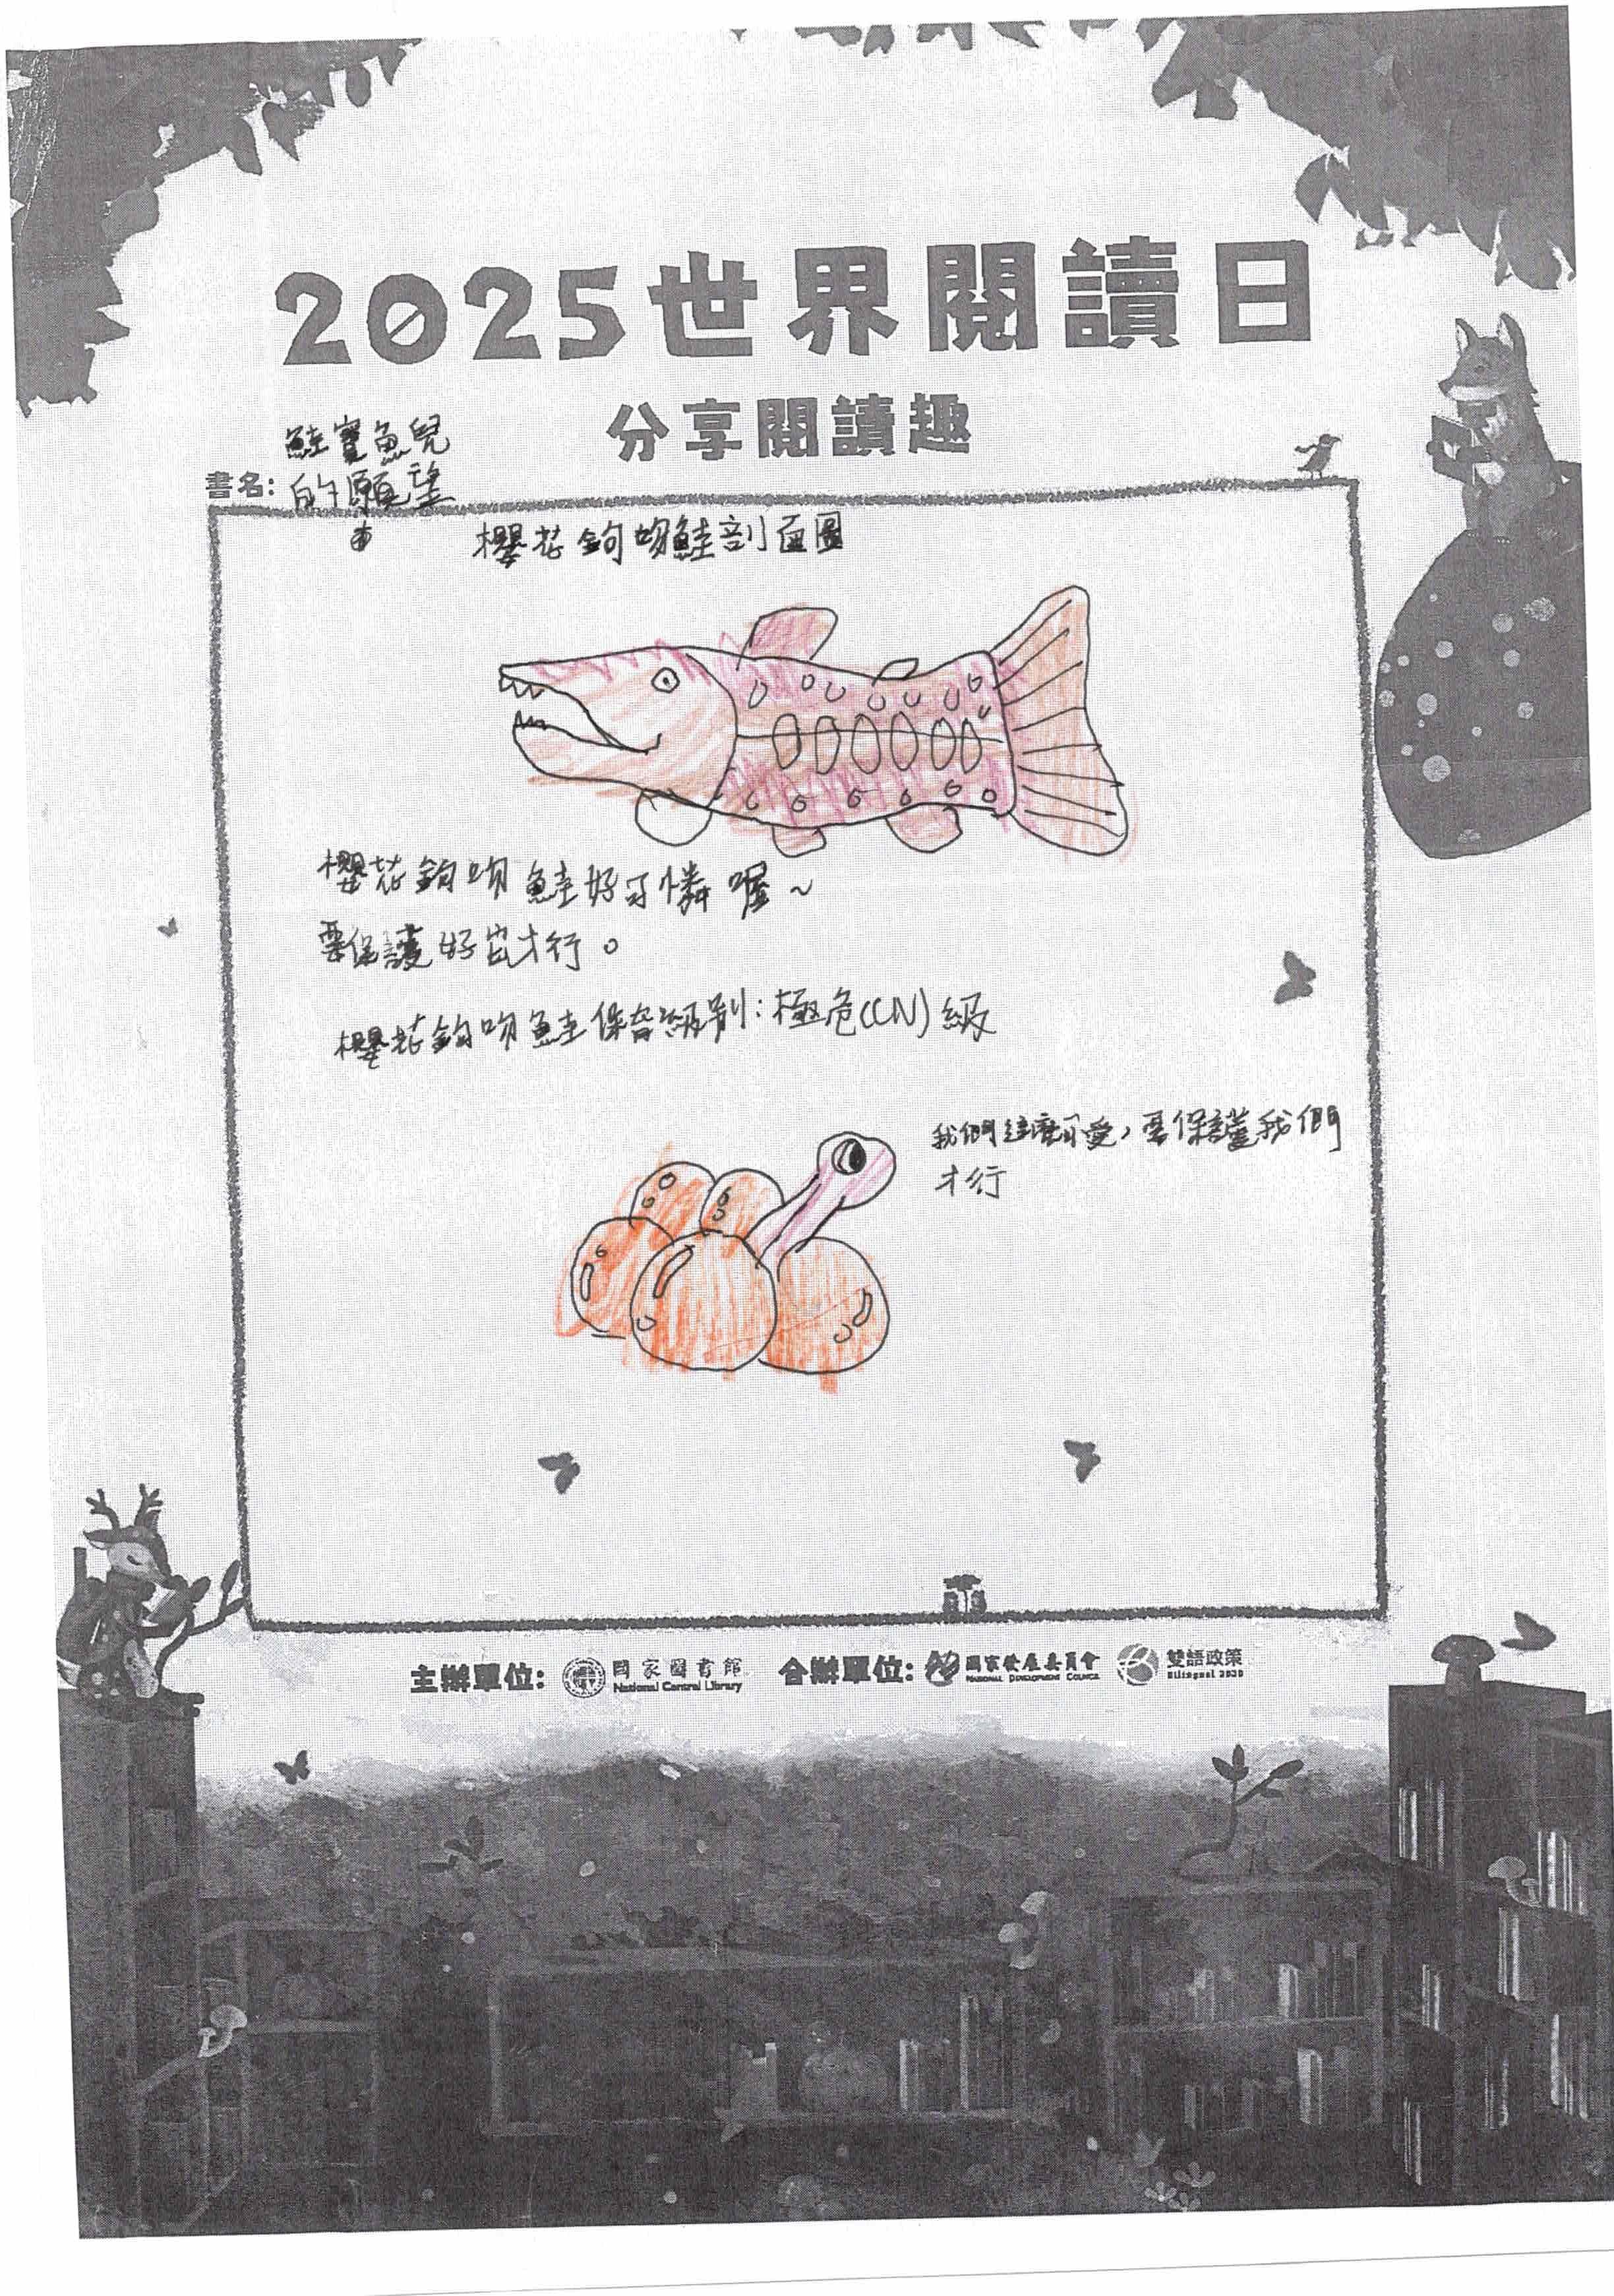 2025世界閱讀日
分享閱讀趣
書名:
鮭寶魚兒
的願望
櫻花鉤吻鮭剖面圖
櫻花鉤吻鮭好可憐喔~
要保護好它才行。
櫻花鉤吻鮭保育級別:極危(CN)級
我們這麼可愛,要保護我們
才行
主辦單位: 國家圖書館 National Central Library 合辦單位: 國家發展委員會 NATIONAL DEVELOPMENT COUNCIL 雙語政策 Bilingual 2030